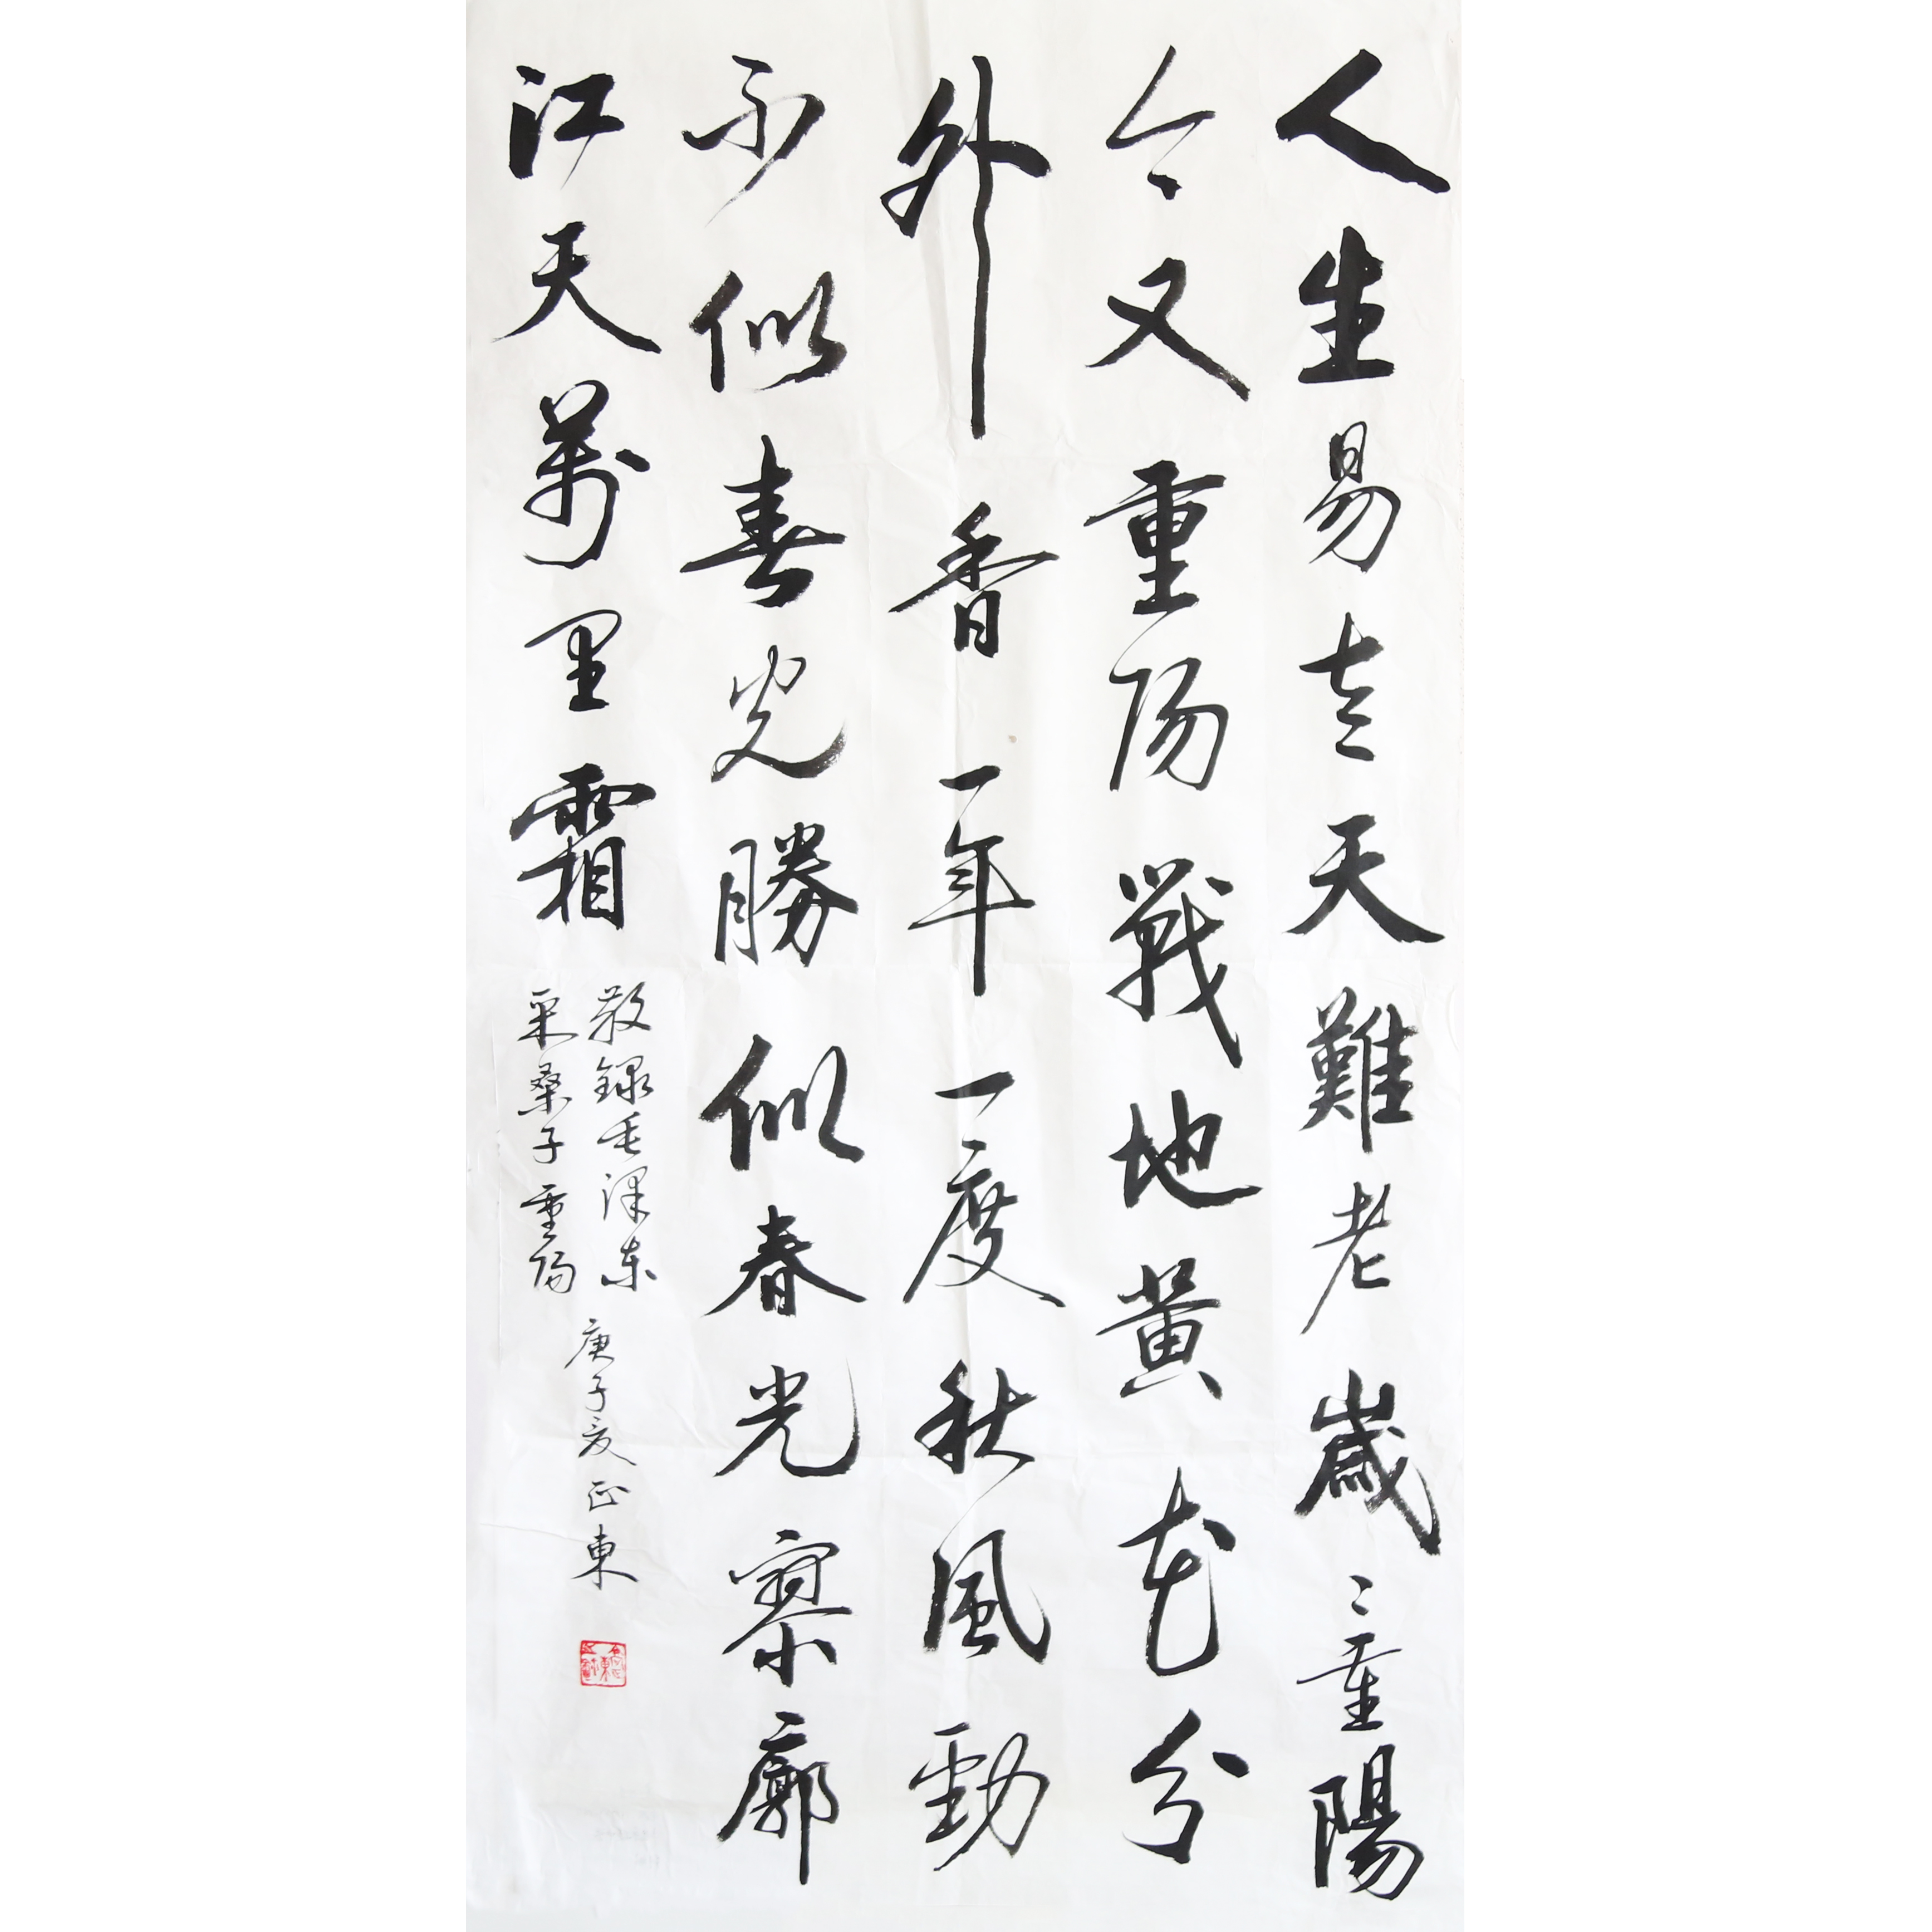 人生易老天難老歲〻重陽
今又重陽戰地黃花分
外香一年一度秋風勁
不似春光勝似春光寥廓
江天萬里霜
敬録毛澤东
采桑子重陽
庚子夏正東